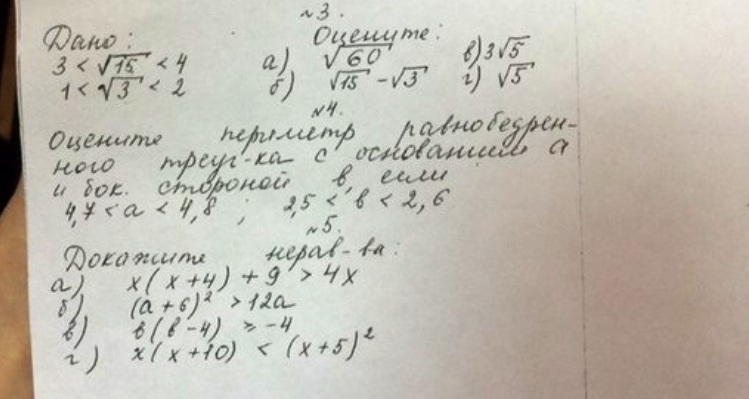 №3.
Дано: Оцените:
3 < √15 < 4 а) √60 в) 3√5
1 < √3 < 2 б) √15 - √3 г) √5
№4.
Оцените периметр равнобедрен-
ного треуг-ка с основанием а
и бок. стороной в, если
4,7 < а < 4,8 ; 2,5 < в < 2,6
№5.
Докажите нерав-ва:
а) x(x+4) + 9 > 4x
б) (а+6)² > 12а
в) в(в-4) ≥ -4
г) x(x+10) < (x+5)²